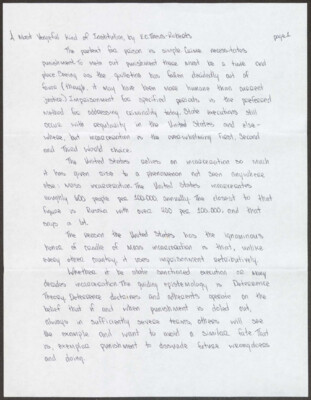 A Most Vengeful Kind of Institution, by page 1
The pretext for prison is simple. Crime necessitates
punishment. To mete out punishment there must be a time and
place. Seeing as the guillotine has fallen decidedly out of
favor (though, it may have been more humane than present
justice) Imprisonment for specified periods is the preferred
method for addressing criminality today. State executions still
occur with regularity in the United States and else-
where, but incarceration is the overwhelming First, Second
and Third World choice.
The United States relies on incarceration so much
it has given rise to a phenomenon not seen anywhere
else: Mass incarceration. The United States incarcerates
roughly 600 people per 100,000 annually. The closest to that
figure is Russia with over 400 per 100,000, and that
says a lot.
The reason the United States has the ignominious
honor of cradle of mass incarceration is that, unlike
many other country, it uses imprisonment retributively.
Whether it be state sanctioned execution or many
decades incarceration the guiding epistemology is Deterrence
Theory. Deterrence dictums and adherents operate on the
belief that if and when punishment is doled out,
always in sufficiently severe terms, others will see
the example and want to avoid a similar fate. That
is, exemplar punishment to dissuade future wrongdoers
and doing.